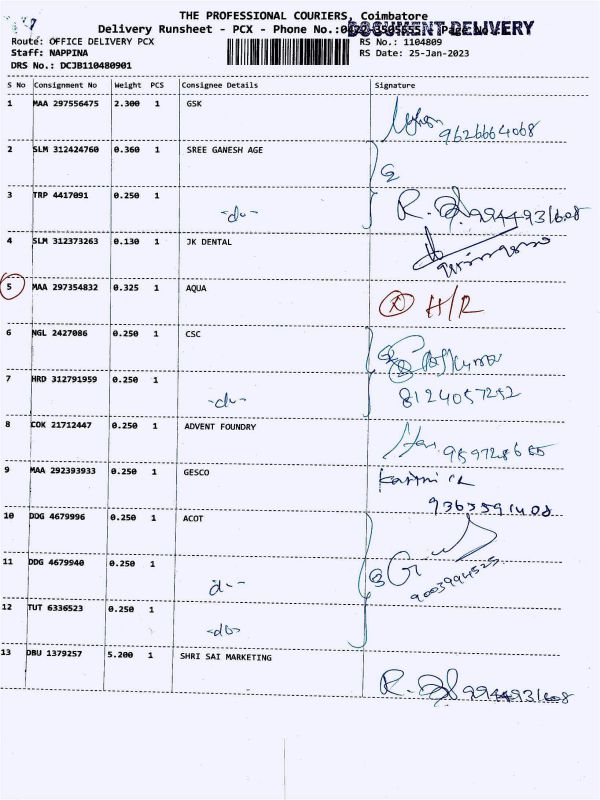 THE PROFESSIONAL COURIERS, Coimbatore
Delivery Runsheet - PCX - Phone No.: Page No.:
DOCUMENT DELIVERY
Route: OFFICE DELIVERY PCX RS No.: 1104809
Staff: NAPPINA RS Date: 25-Jan-2023
DRS No.: DCJB110480901
S No Consignment No Weight PCS Consignee Details Signature
1 MAA 297556475 2.300 1 GSK
9626664068
2 SLM 312424760 0.360 1 SREE GANESH AGE
3 TRP 4417091 0.250 1 -do-
R. 9944931608
4 SLM 312373263 0.130 1 JK DENTAL
5 MAA 297354832 0.325 1 AQUA X H/R
6 NGL 2427086 0.250 1 CSC
7 HRD 312791959 0.250 1 -do- 8124057252
8 COK 21712447 0.250 1 ADVENT FOUNDRY
9 MAA 292393933 0.250 1 GESCO
10 DDG 4679996 0.250 1 ACOT
11 DDG 4679940 0.250 1 do-
9003994525
12 TUT 6336523 0.250 1 -do-
13 DBU 1379257 5.200 1 SHRI SAI MARKETING
R. 9944931608